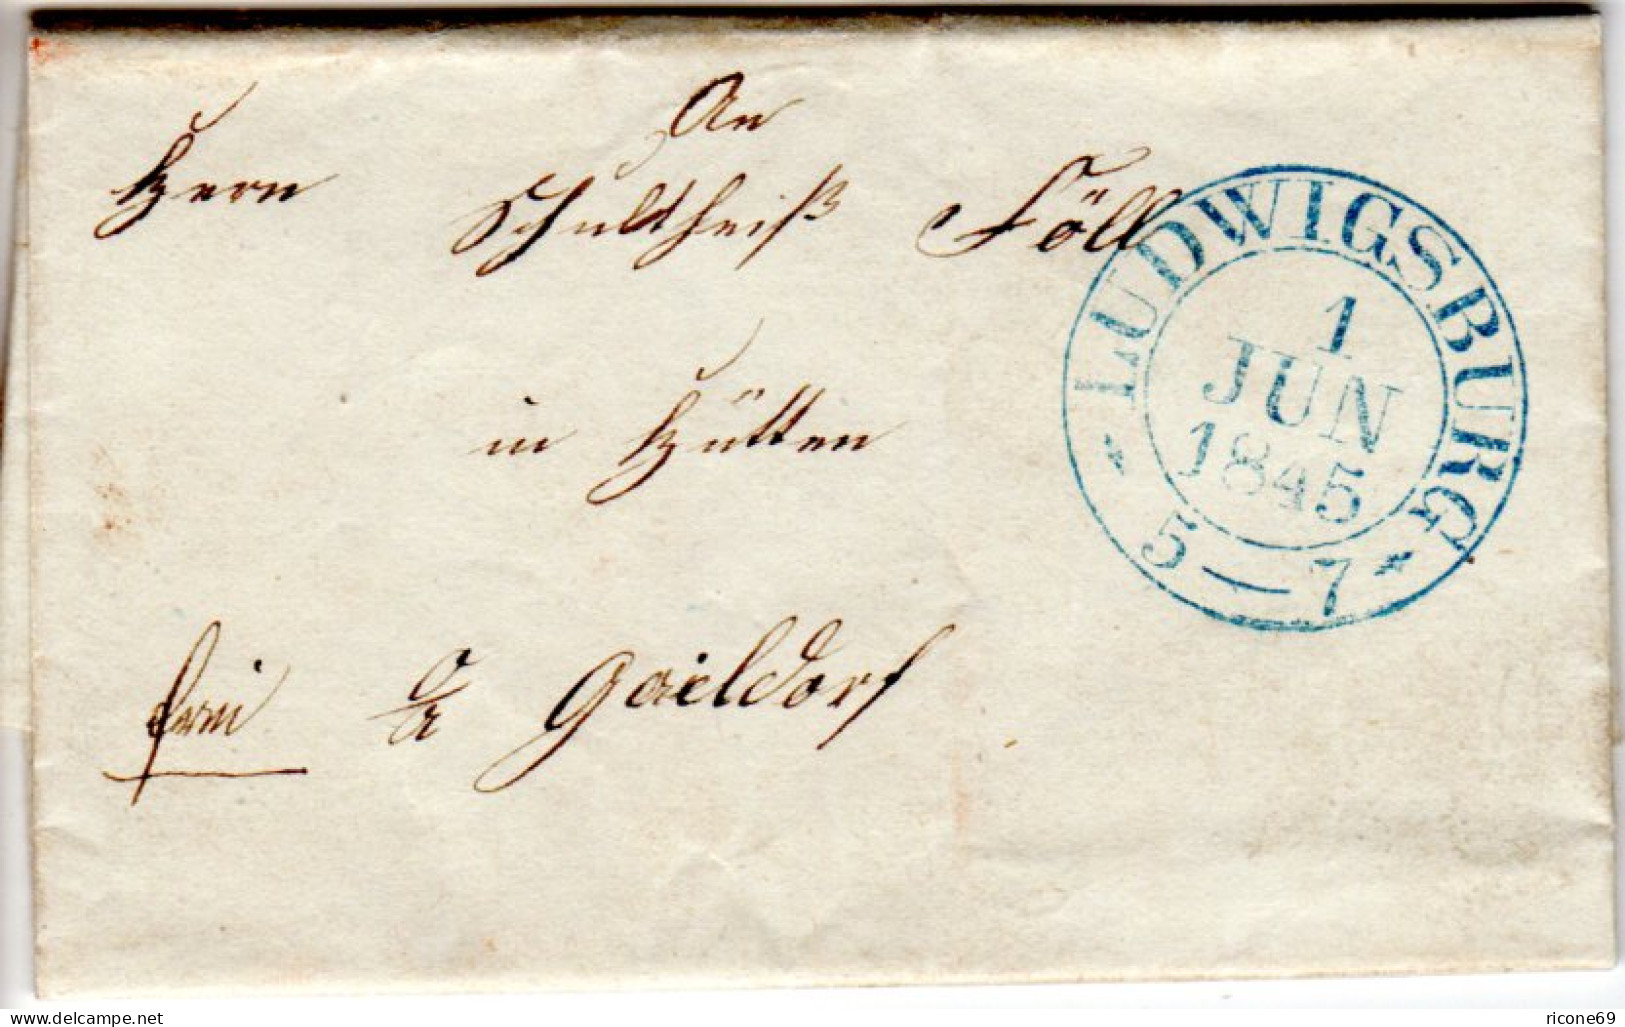 An
Herrn Schultheiß Föll
in Hütten
frei O/A Gaildorf
LUDWIGSBURG
1
JUN
1845
5—7
www.delcampe.net
ricone69